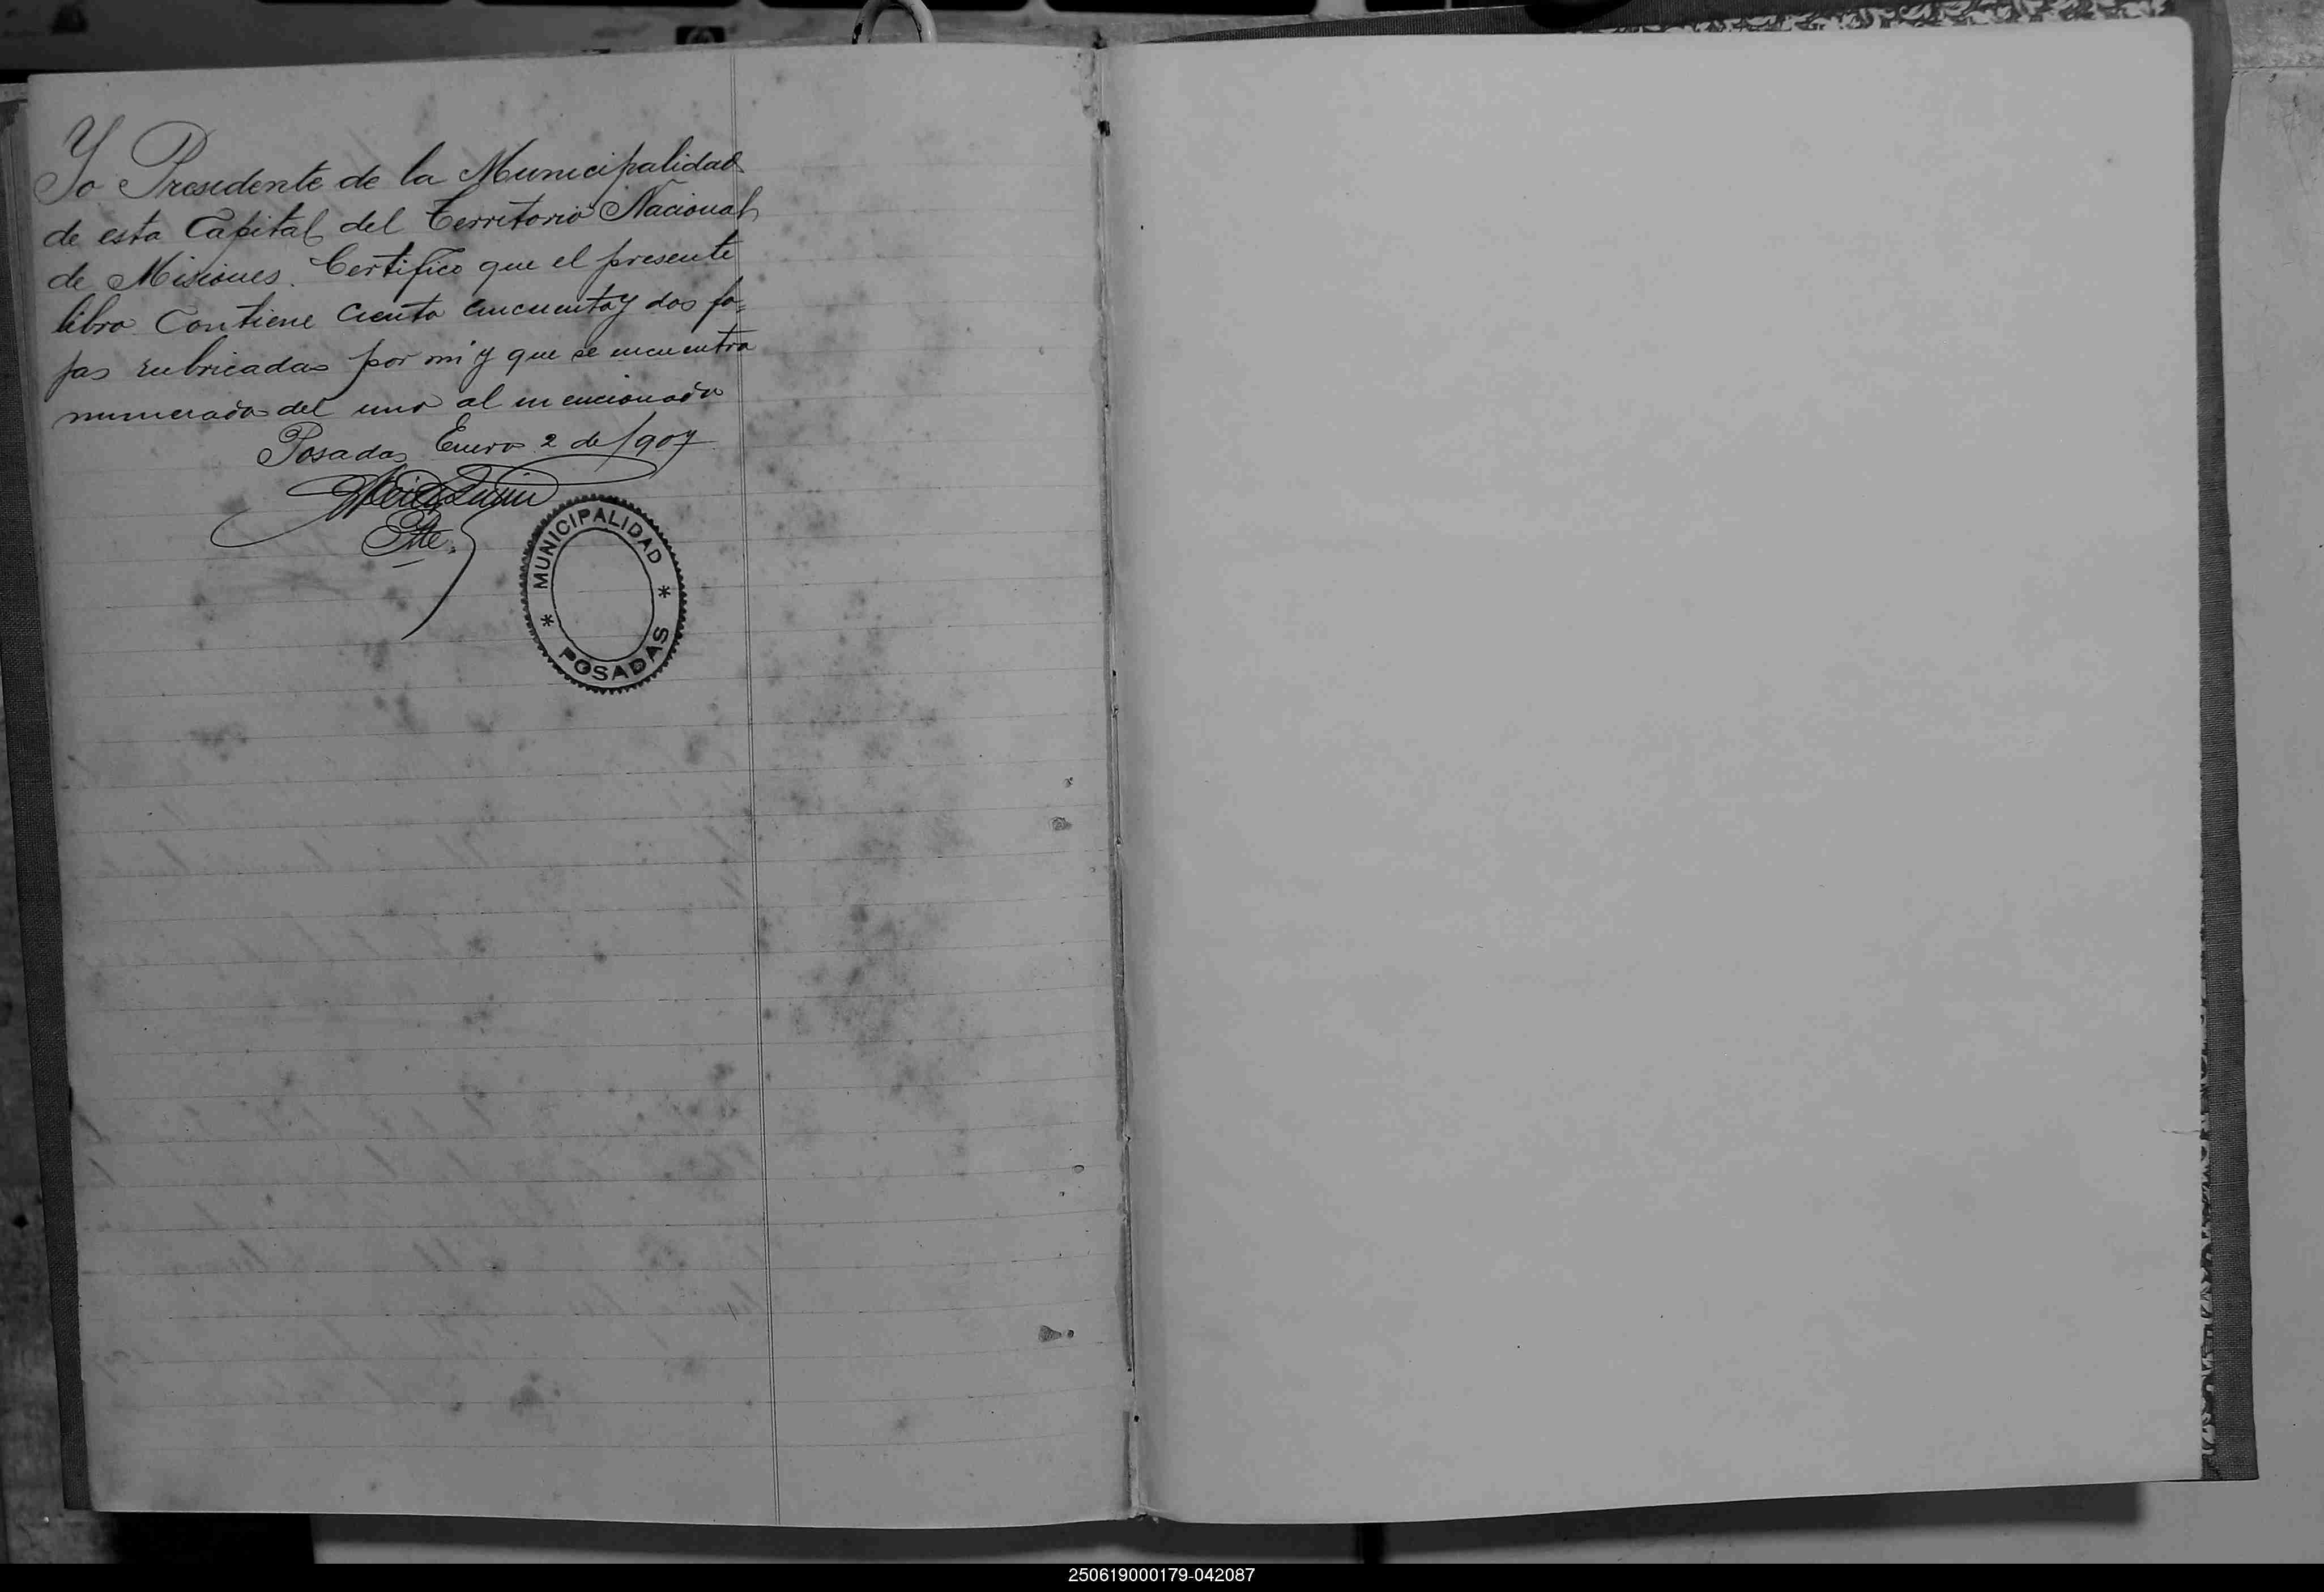 Yo Presidente de la Municipalidad
de esta Capital del Territorio Nacional
de Misiones. Certifico que el presente
libro Contiene Ciento cincuenta y dos fo=
jas rubricadas por mi y que se encuentra
numerada del uno al mencionado
Posadas Enero 2 de 1907
Pte.
MUNICIPALIDAD
POSADAS
250619000179-042087